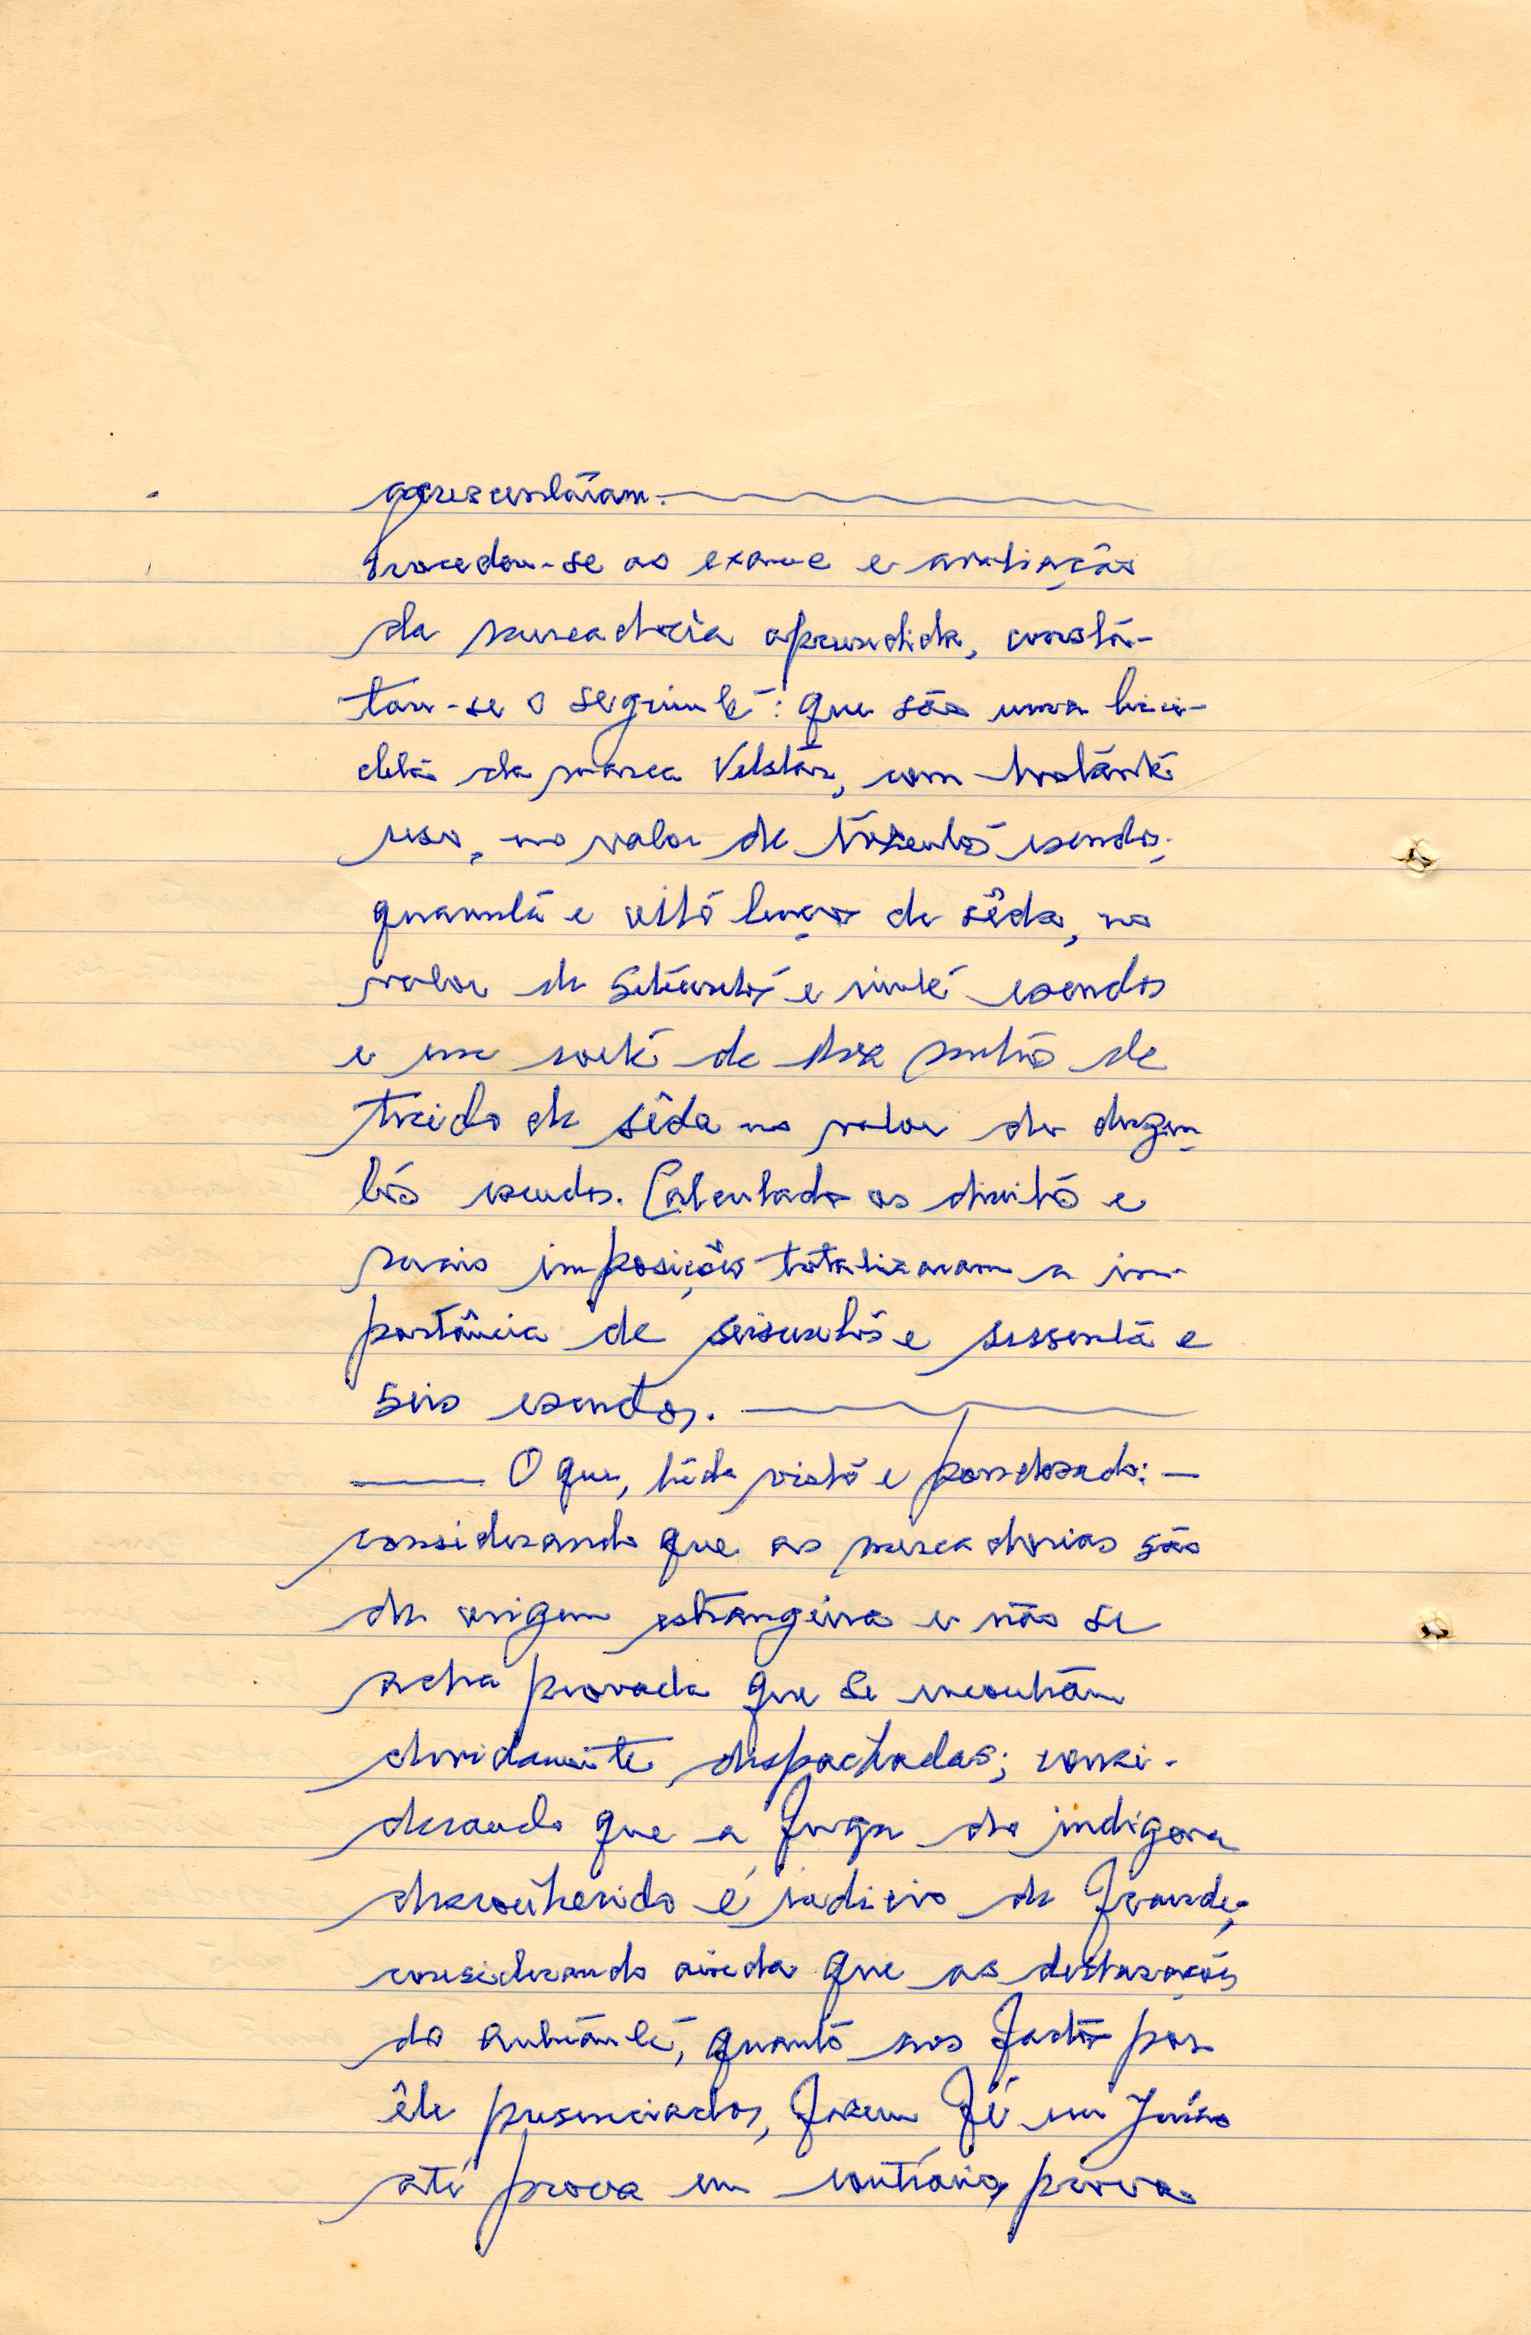 acrescentaram.
Procedeu-se ao exame e avaliação
da mercadoria apreendida, consta-
tou-se o seguinte: que são uma bici-
cleta da marca Velstar, com bastante
uso, no valor de trezentos escudos;
quarenta e oito lenços de sêda, no
valor de setecentos e vinte escudos
e um corte de dez metros de
tecido de sêda no valor de duzen-
tos escudos. Calculados os direitos e
mais imposições totalizaram a im-
portância de seiscentos e sessenta e
seis escudos.
O que, tudo visto e ponderado: —
considerando que as mercadorias são
de origem estrangeira e não se
acha provado que se encontram
devidamente despachadas; consi-
derando que a fuga do indígena
desconhecido é indício de fraude;
considerando ainda que as declarações
do autuante, quanto aos factos por
êle presenciados, fazem fé em Juízo
até prova em contrário, prova